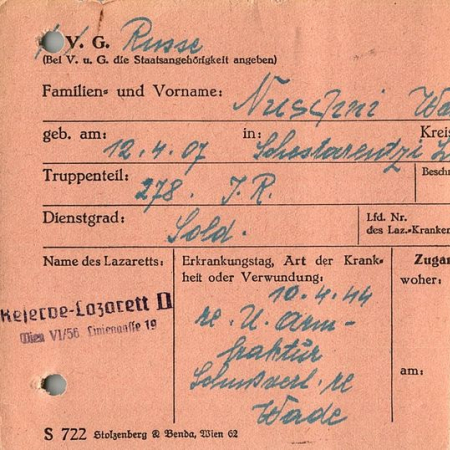 V. G. Russe
(Bei V. u. G. die Staatsangehörigkeit angeben)
Familien- und Vorname: Nuschni Wa
geb. am: in: Kreis
12.4.07 Schestarentzi
Truppenteil: Beschr
278. J.R.
Dienstgrad: Sold. Lfd. Nr.
des Laz.-Kranken
Name des Lazaretts: Erkrankungstag, Art der Krank- Zugan
heit oder Verwundung: woher:
10.4.44
Reserve-Lazarett II re. U. Arm-
Wien VI/56, Liniengasse 19 fraktur
Schußverl. re am:
Wade
S 722 Stolzenberg & Benda, Wien 62